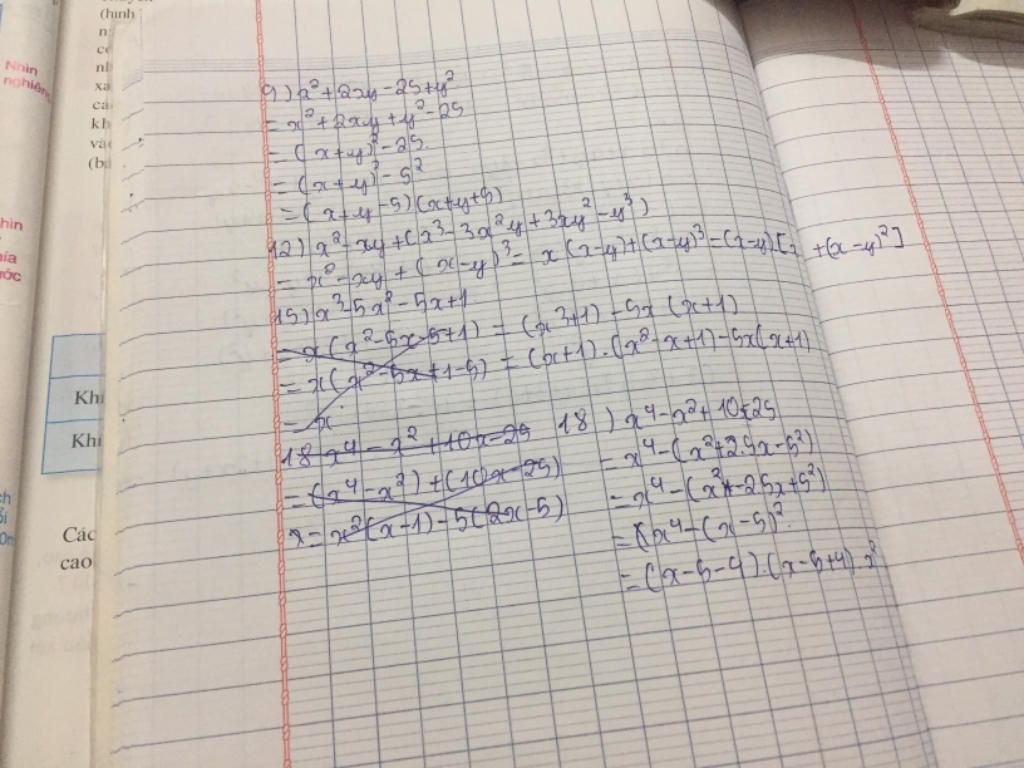 (hình
Nhìn
nghiêng
Khi
Khi
Các
cao
9) x² + 2xy - 25 + y²
= x² + 2xy + y² - 25
= (x+y)² - 25
= (x+y)² - 5²
= (x+y-5)(x+y+5)
12) x² - xy + (x³ - 3x²y + 3xy² - y³)
= x² - xy + (x-y)³ = x(x-y) + (x-y)³ = (x-y)[x + (x-y)²]
15) x³ - 5x² - 5x + 1
= x(x² - 5x - 5 + 1) = (x³ + 1) - 5x(x+1)
= x(x² - 5x + 1 - 5) = (x+1).(x² - x + 1) - 5x(x+1)
= x
18 x⁴ - x² + 10x - 25
= (x⁴ - x²) + (10x - 25)
= x²(x-1) - 5(2x-5)
18) x⁴ - x² + 10x - 25
= x⁴ - (x² + 2.5x - 5²)
= x⁴ - (x² - 2.5x + 5²)
= x⁴ - (x-5)²
= (x-5-4).(x-5+4).x²